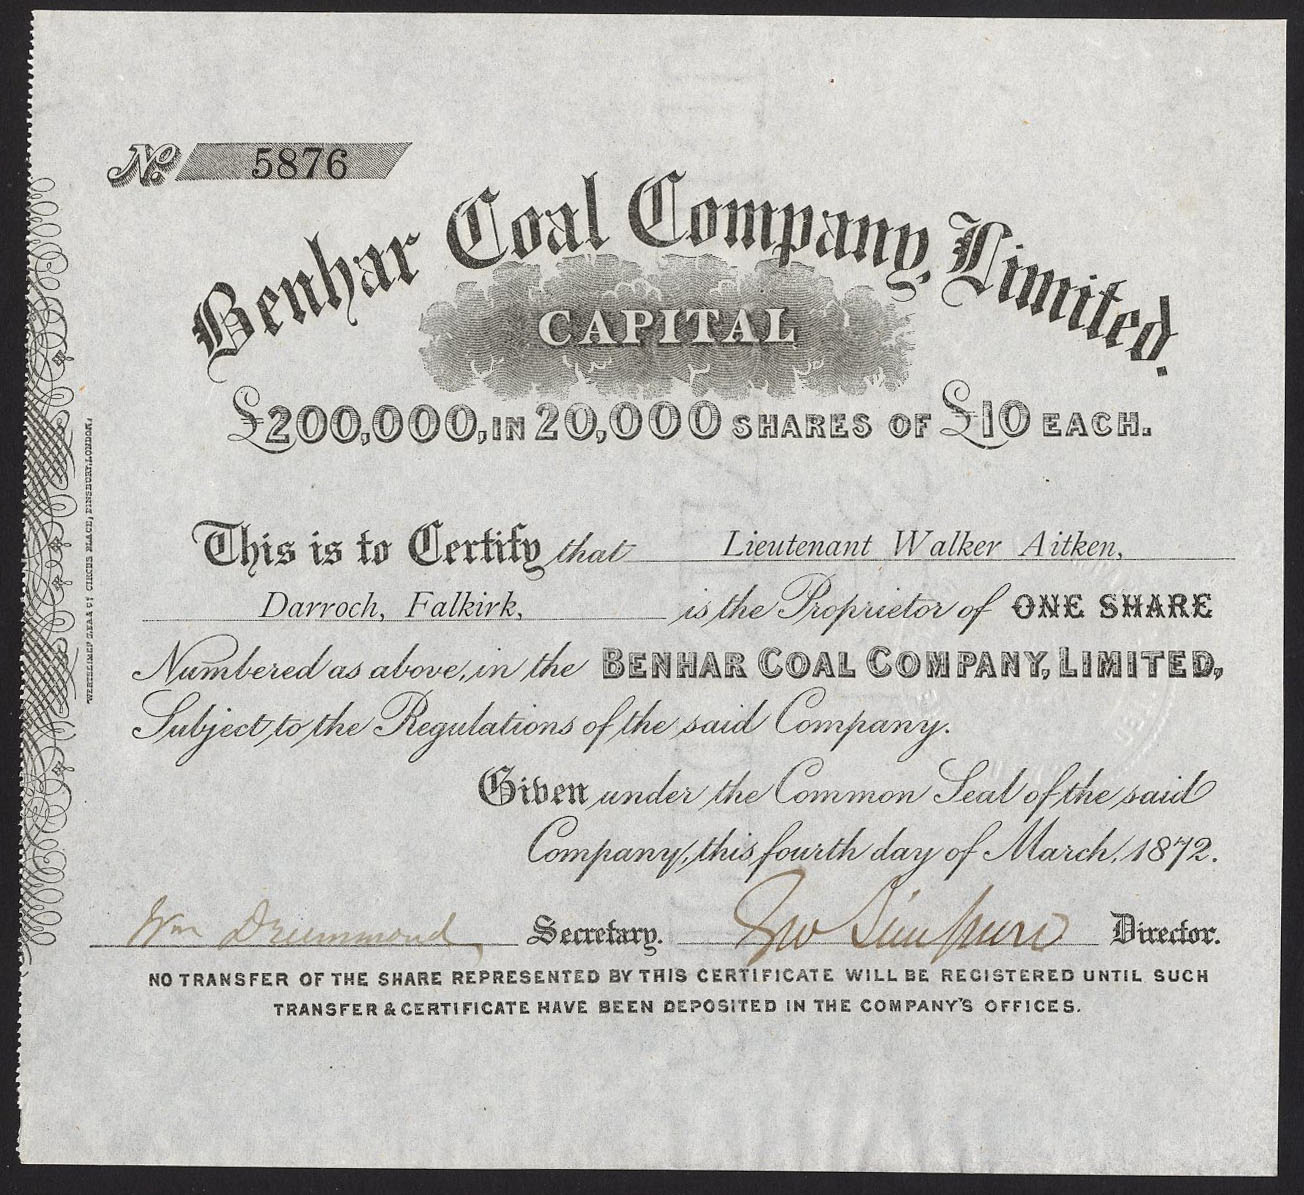 No. 5876
Benhar Coal Company, Limited.
CAPITAL
£200,000, IN 20,000 SHARES OF £10 EACH.
This is to Certify that Lieutenant Walker Aitken,
Darroch, Falkirk, is the Proprietor of ONE SHARE
Numbered as above, in the BENHAR COAL COMPANY, LIMITED,
Subject to the Regulations of the said Company.
Given under the Common Seal of the said
Company, this fourth day of March, 1872.
Wm Drummond Secretary. Geo Simpson Director.
NO TRANSFER OF THE SHARE REPRESENTED BY THIS CERTIFICATE WILL BE REGISTERED UNTIL SUCH
TRANSFER & CERTIFICATE HAVE BEEN DEPOSITED IN THE COMPANY'S OFFICES.
WERTHEIMER LEA & Co CIRCUS PLACE, FINSBURY, LONDON.